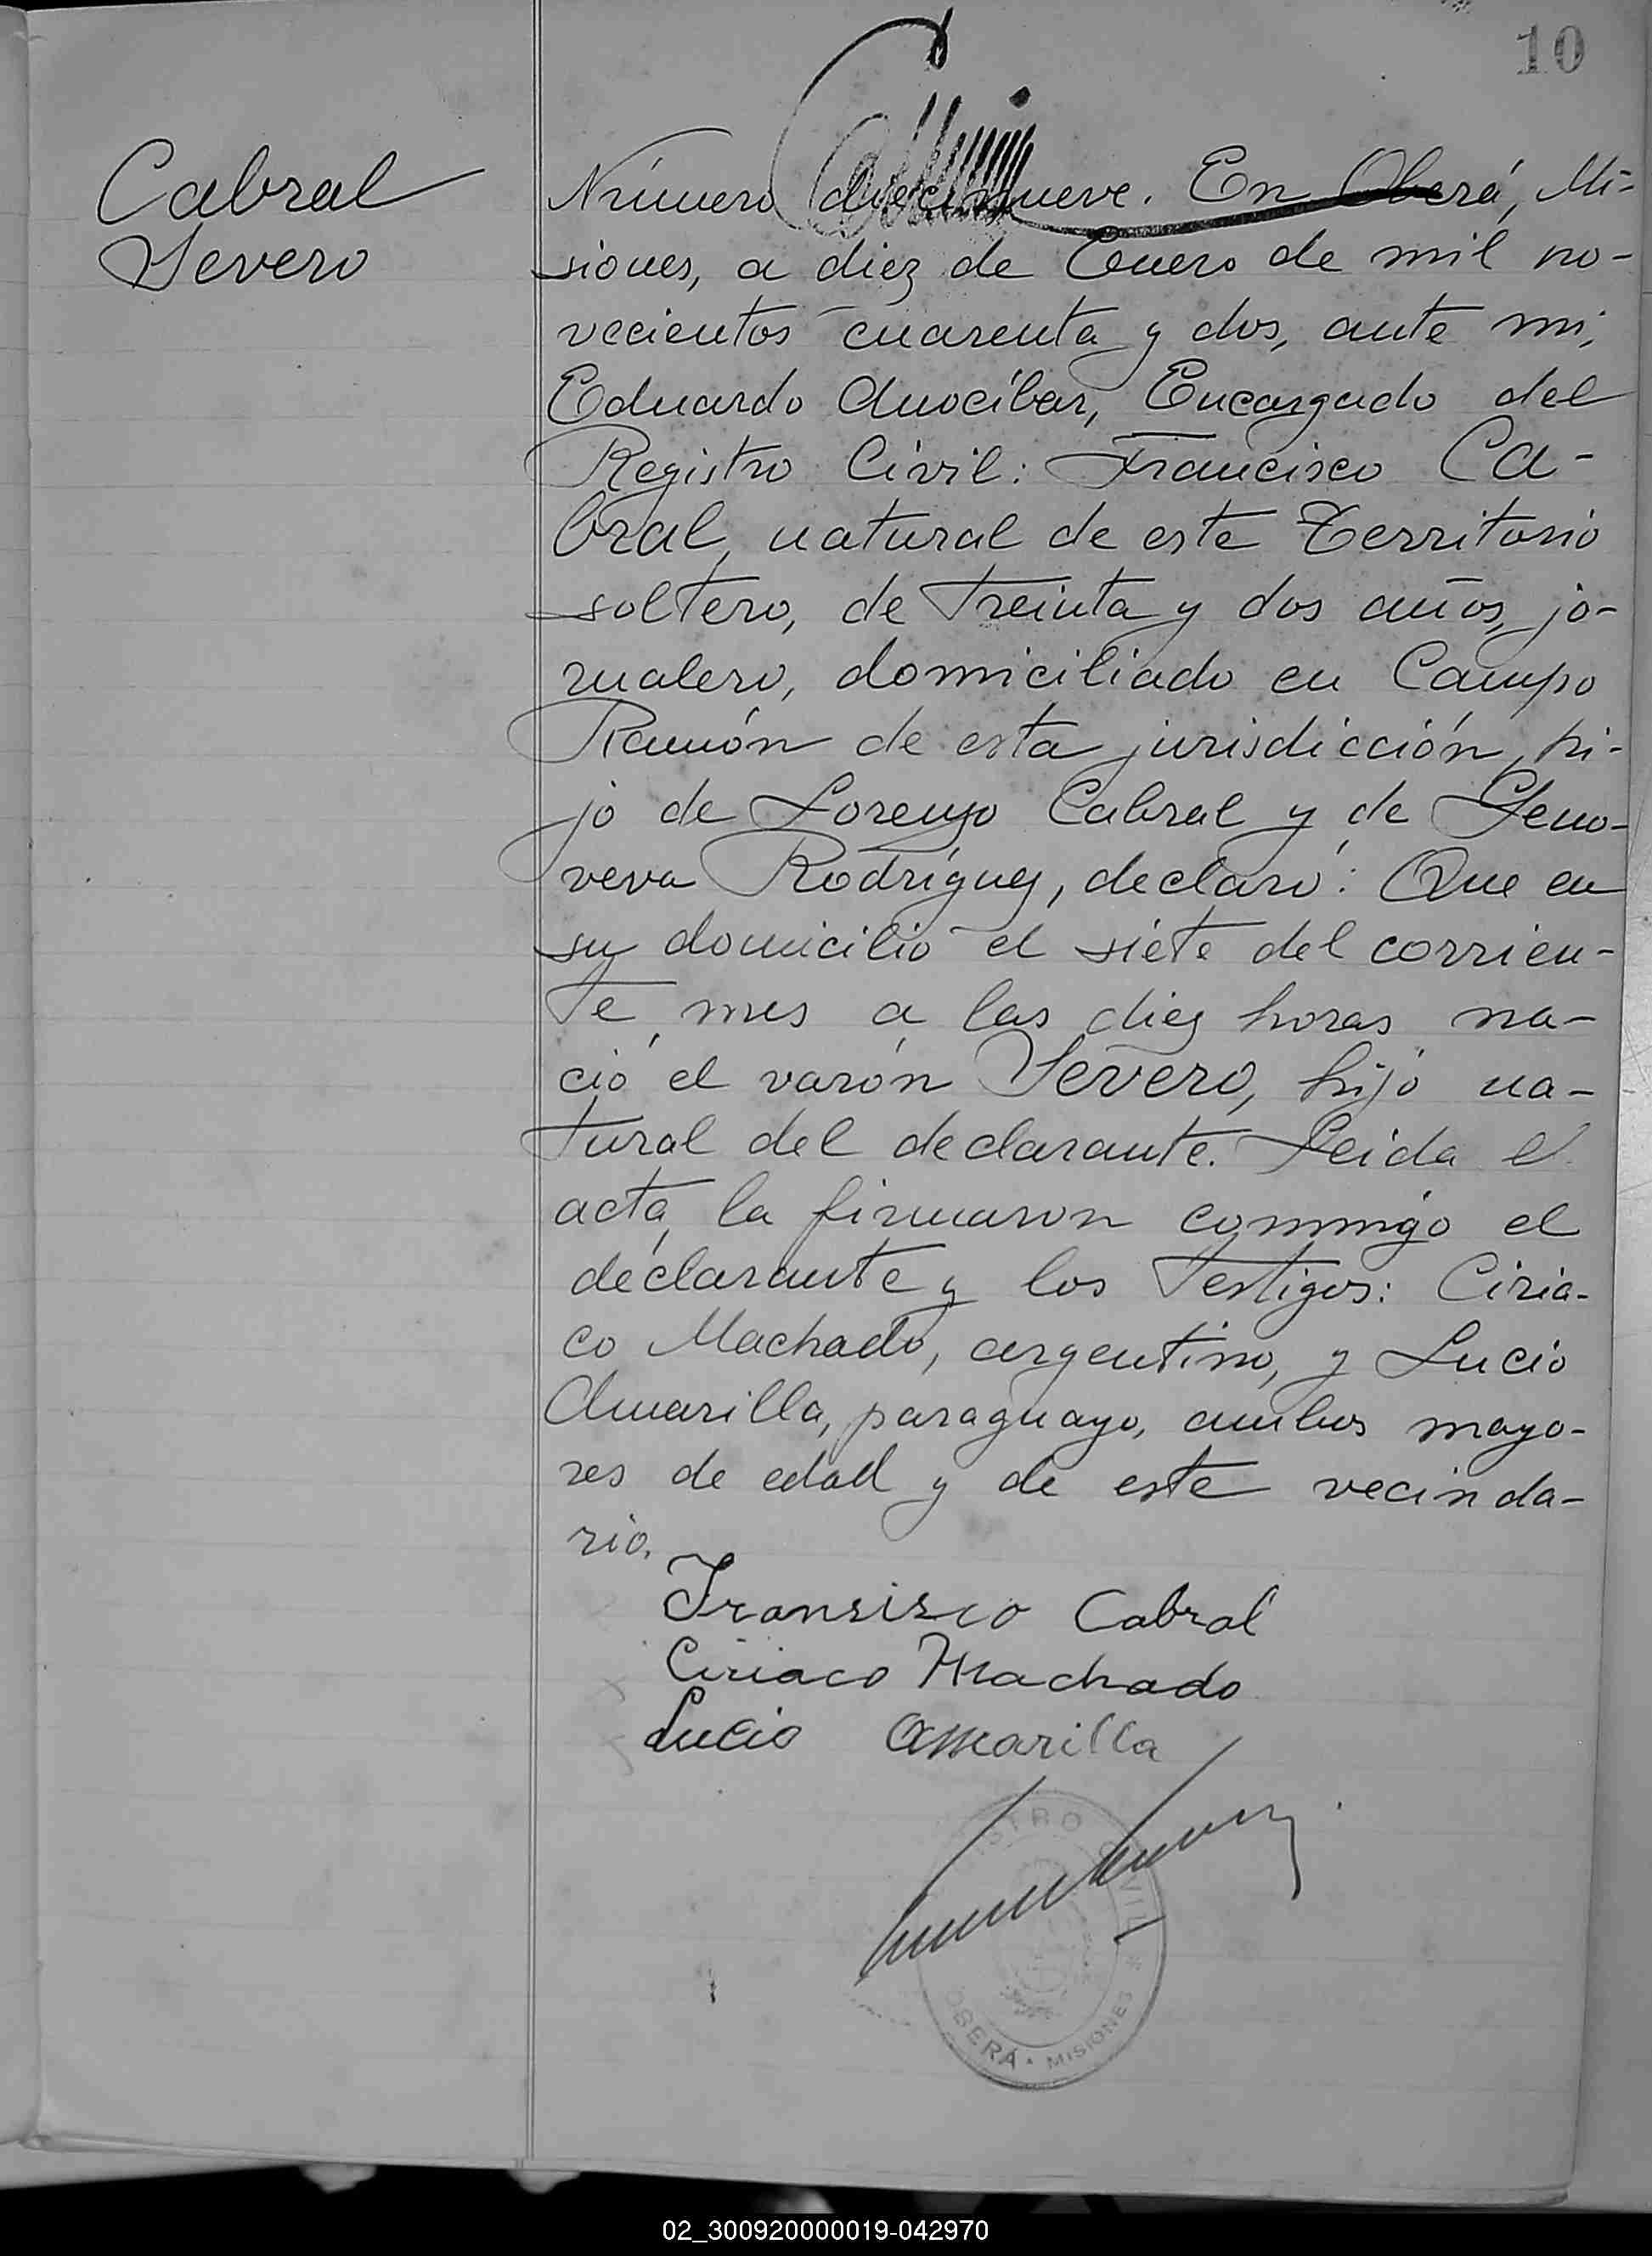 10
Cabral
Severo
Número diecinueve. En Oberá, Mi-
siones, a diez de Enero de mil no-
vecientos cuarenta y dos, ante mi,
Eduardo Anocíbar, Encargado del
Registro Civil: Francisco Ca-
bral, natural de este Territorio
soltero, de treinta y dos años, jo-
rnalero, domiciliado en Campo
Ramón de esta jurisdicción, hi-
jo de Lorenzo Cabral y de Geno-
veva Rodríguez, declaró: Que en
su domicilio el siete del corrien-
te mes a las diez horas na-
ció el varón Severo, hijo na-
tural del declarante. Leida el
acta, la firmaron conmigo el
declarante y los testigos: Ciria-
co Machado, argentino, y Lucio
Amarilla, paraguayo, ambos mayo-
res de edad y de este vecinda-
rio.
Fransisco Cabral
Ciriaco Machado
Lucio Amarilla
STRO CIVIL
OBERÁ · MISIONES
02_300920000019-042970